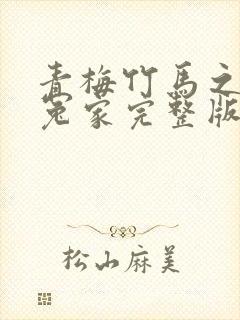 青梅竹马之
冤家完整版
松山麻美